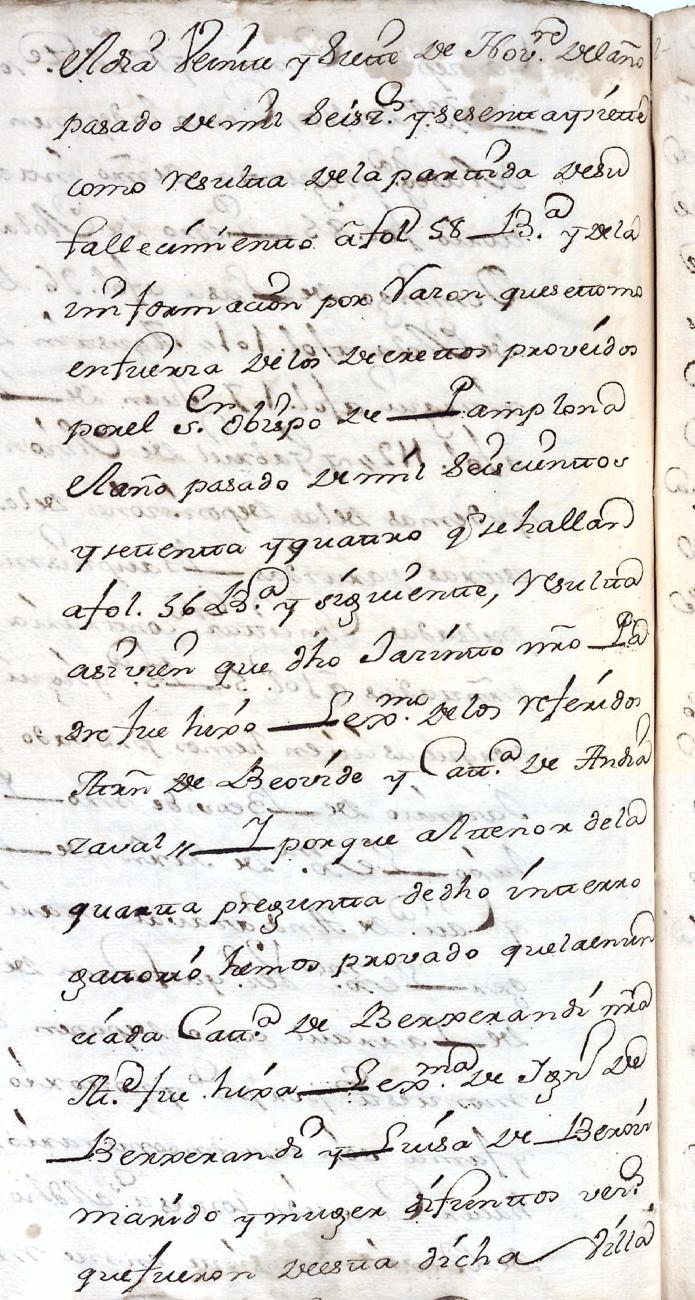 El dia Veinte y Siete de Nov.re del año
pasado de mil Seisz.s y sesenta y siete
como resulta de la partida de su
fallecimiento a fol 58 B.ta y de la
imformacion por Varon que se tomo
en fuerza de los decretos proveidos
por el S.r Obispo de Pamplona
el año pasado de mil Seiscientos
y setenta y quatro q se hallan
a fol. 36 B.ta y siguiente, resulta
asi vien que dho Jazinto nro Pa
dre fue hixo Lexmo. de los referidos
Mrn de Beovide y Catt.a de Andia
zaval // Y porque al tenor de la
quarta pregunta de dho interro
gatorio, hemos provado que la enun
ciada Catt.a de Berrerandi nra
M.e fue hixa Lexma. de Ign.o de
Berrerandi y Luisa de Beroiz
marido y muger difuntos vez.s
que fueron de esta dicha Villa